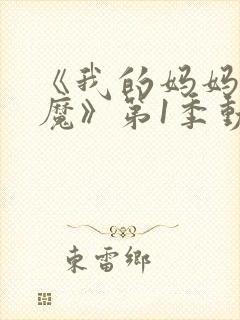 《我的妈妈
魔》第1季動
束雷鄉